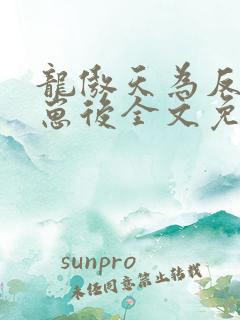 龍傲天為反
崽後全文免
sunpro
未任同意禁止转载